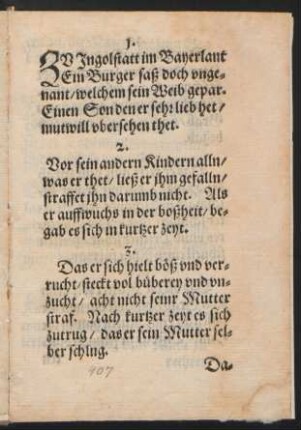 1.
ZV Jngolstatt im Bayerlant
Ein Burger saß doch vnge-
nant/ welchem sein Weib gepar.
Einen Son den er sehr lieb het/
mutwill vbersehen thet.
2.
Vor sein andern Kindern alln/
was er thet/ ließ er jhm gefalln/
straffet jhn darumb nicht. Als
er auffwuchs in der boßheit/ be-
gab es sich in kurtzer zeyt.
3.
Das er sich hielt böß vnd ver-
rucht/ steckt vol büberey vnd vn-
zucht/ acht nicht seinr Mutter
straf. Nach kurtzer zeyt es sich
zutrug/ das er sein Mutter sel-
ber schlug.
Da-
907